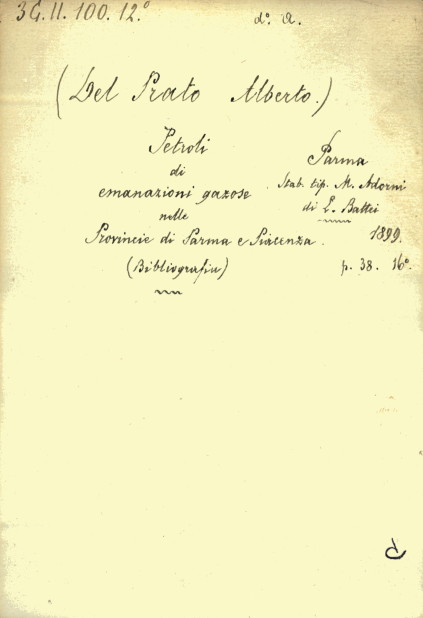 3G.II.100.12.° d.° a.
(Del Prato Alberto.)
Petroli
di
emanazioni gazose
nelle
Provincie di Parma e Piacenza.
(Bibliografia)
Parma
Stab. tip. M. Adorni
di L. Battei
1899.
p. 38. 16°.